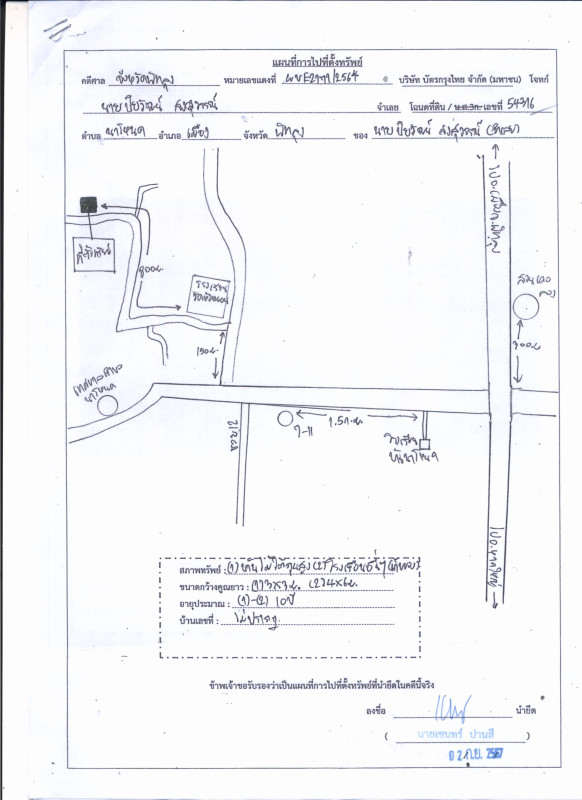 แผนที่การไปที่ตั้งทรัพย์
คดีศาล จังหวัดพัทลุง หมายเลขแดงที่ ผบE2177/2564 บริษัท บัตรกรุงไทย จำกัด (มหาชน) โจทก์
นาย ปิยวัฒน์ สงสุวรรณ์ จำเลย โฉนดที่ดิน / น.ส.3ก. เลขที่ 54316
ตำบล นาโหนด อำเภอ เมือง จังหวัด พัทลุง ของ นาย ปิยวัฒน์ สงสุวรรณ์
ไป อ.เมืองพัทลุง
ที่ตั้งทรัพย์
800ม.
โรงเรียน
150ม.
300ม.
เทศบาลตำบล
นาโหนด
7-11
1.5ก.ม.
โรงเรียน
บ้านนาโหนด
ไป อ.หาดใหญ่
สภาพทรัพย์ : (1) บ้านไม้ใต้ถุนสูง (2) โรงเรือนอื่นๆ
ขนาดกว้างคูณยาว : (1) 3x3ม. (2) 4x6ม.
อายุประมาณ : (1)-(2) 10ปี
บ้านเลขที่ : ไม่ปรากฏ
ข้าพเจ้าขอรับรองว่าเป็นแผนที่การไปที่ตั้งทรัพย์ที่นำยึดในคดีนี้จริง
ลงชื่อ นำยึด
( นายเชนทร์ ปานสี )
02 ก.ย. 2567